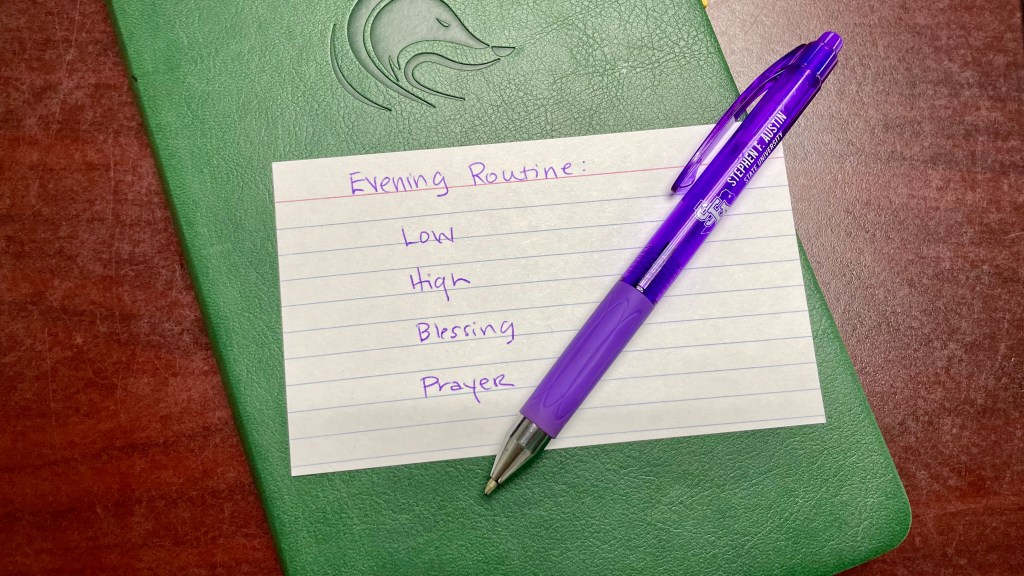 Evening Routine:
Low
High
Blessing
Prayer
STEPHEN F. AUSTIN
STATE UNIVERSITY
SFA